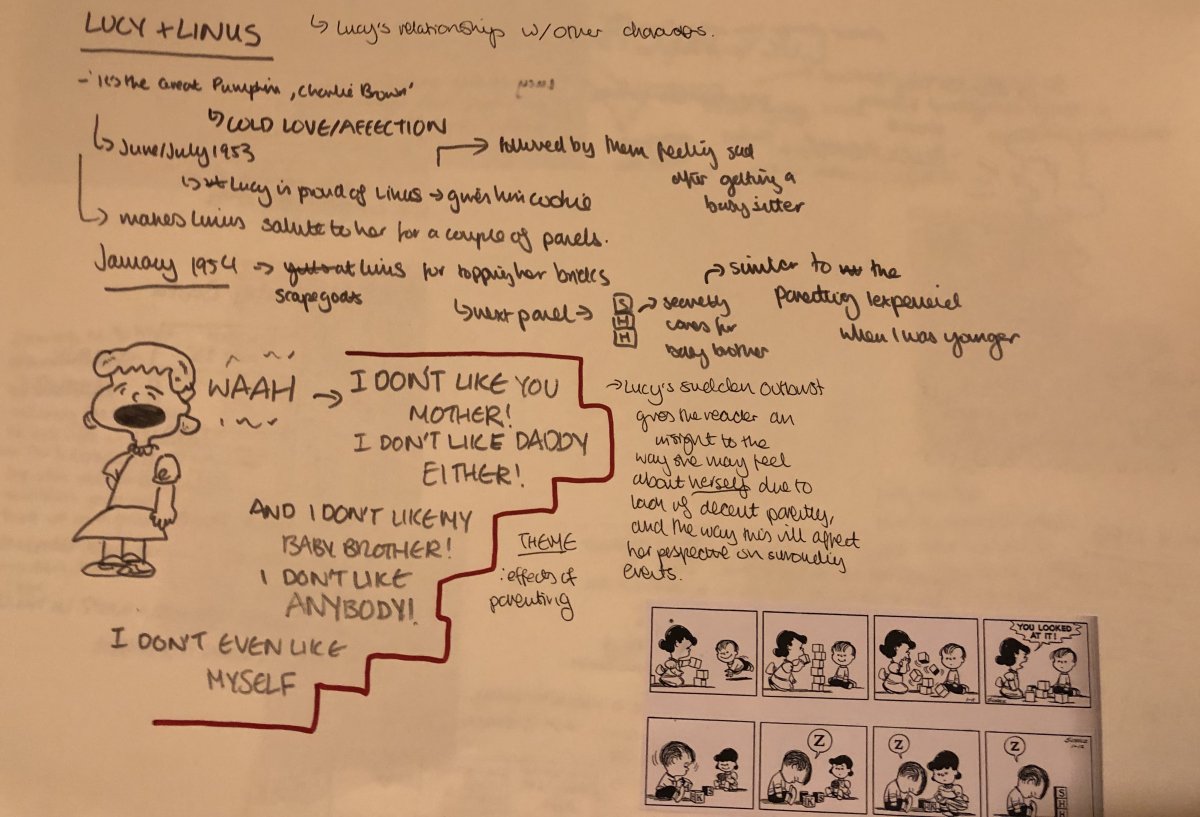 LUCY + LINUS
↳ Lucy's relationship w/ other characters.
- 'It's the Great Pumpkin, Charlie Brown'
↳ COLD LOVE/AFFECTION
↳ June/July 1953
→ followed by them feeling sad
after getting a
babysitter
↳ Lucy is proud of Linus → gives him cookie
↳ makes Linus salute to her for a couple of panels.
January 1954 → yells at Linus for toppling her bricks
scapegoats
↳ next panel →
S
H
H
→ secretly
cares for
baby brother
→ similar to the
parenting I experienced
when I was younger
WAAH →
I DON'T LIKE YOU
MOTHER!
I DON'T LIKE DADDY
EITHER!
AND I DON'T LIKE MY
BABY BROTHER!
I DON'T LIKE
ANYBODY!
I DON'T EVEN LIKE
MYSELF
→ Lucy's sudden outburst
gives the reader an
insight to the
way she may feel
about herself due to
lack of decent parenting,
and the way this will affect
her perspective on surrounding
events.
THEME
: effects of
parenting
YOU LOOKED
AT IT!
Z
Z
Z
S
H
H